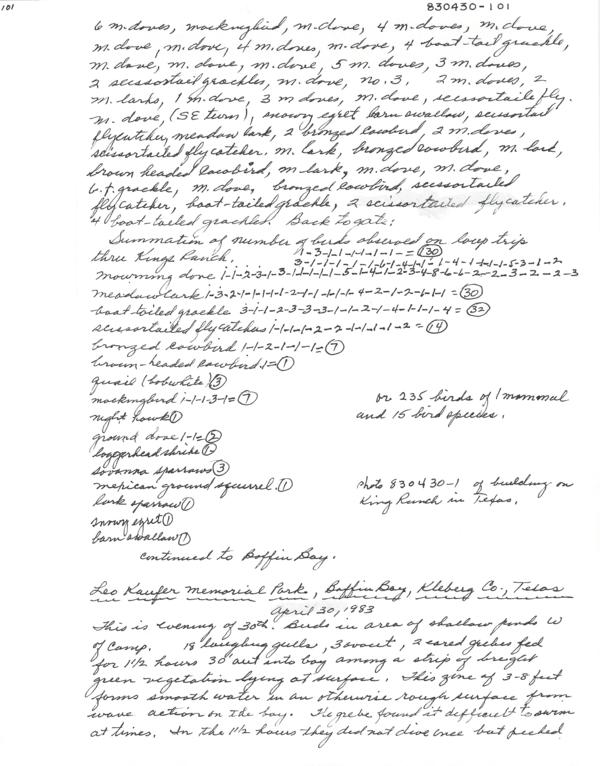 101
830430-101
6 m.doves, mockingbird, m.dove, 4 m.doves, m.dove,
m.dove, m.dove, 4 m.doves, m.dove, 4 boat-tail grackle,
m.dove, m.dove, m.dove, 5 m.doves, 3 m.doves,
2 scissortail grackles, m.dove, no.3. 2 m.doves, 2
m.larks, 1 m.dove, 3 m doves, m.dove, scissortaile fly.
m.dove, (SE turn), snowy egret barn swallow, scissortail
flycatcher, meadow lark, 2 bronzed cowbird, 2 m.doves,
scissortailed flycatcher. m. lark, bronzed cowbird, m. lark,
brown headed cowbird, m.lark, m.dove, m.dove,
b.t. grackle, m.dove, bronzed cowbird, scissortailed
flycatcher, boat-tailed grackle, 2 scissortailed flycatcher.
4 boat-tailed grackles. Back to gate:
Summation of number of birds observed on loop trip
thru Kings Ranch.
= 130
mourning dove
meadowlark 1-3-2-1-1-1-1-2-1-1-1-1-1-4-2-1-2-6-1-1 = 30
boat tailed grackle 3-1-1-2-3-3-3-1-1-2-1-4-1-1-1-4 = 32
scissortailed flycatchers 1-1-1-1-2-2-1-1-1-1-2 = 14
bronzed cowbird 1-1-2-1-1-1 = 7
brown-headed cowbird 1 = 1
quail (bobwhite) 3
mockingbird 1-1-1-3-1 = 7
or 235 birds of 1 mammal
night hawk 1
and 15 bird species.
ground dove 1-1 = 2
loggerhead shrike 1
savanna sparrows 3
mexican ground squirrel. 1
photo 830430-1 of building on
lark sparrow 1
King Ranch in Texas.
snowy egret 1
barn swallow 1
continued to Baffin Bay.
Leo Kaufer Memorial Park, Baffin Bay, Kleberg Co., Texas
April 30, 1983
This is evening of 30th. Birds in area of shallow ponds W
of Camp. 18 laughing gulls, 3 avocet, 2 eared grebes fed
for 1 1/2 hours 30' out into bay among a strip of bright
green vegetation lying at surface. This zone of 3-8 feet
forms smooth water in an otherwise rough surface from
wave action on the bay. The grebe found it difficult to swim
at times. In the 1 1/2 hours they did not dive once but pecked